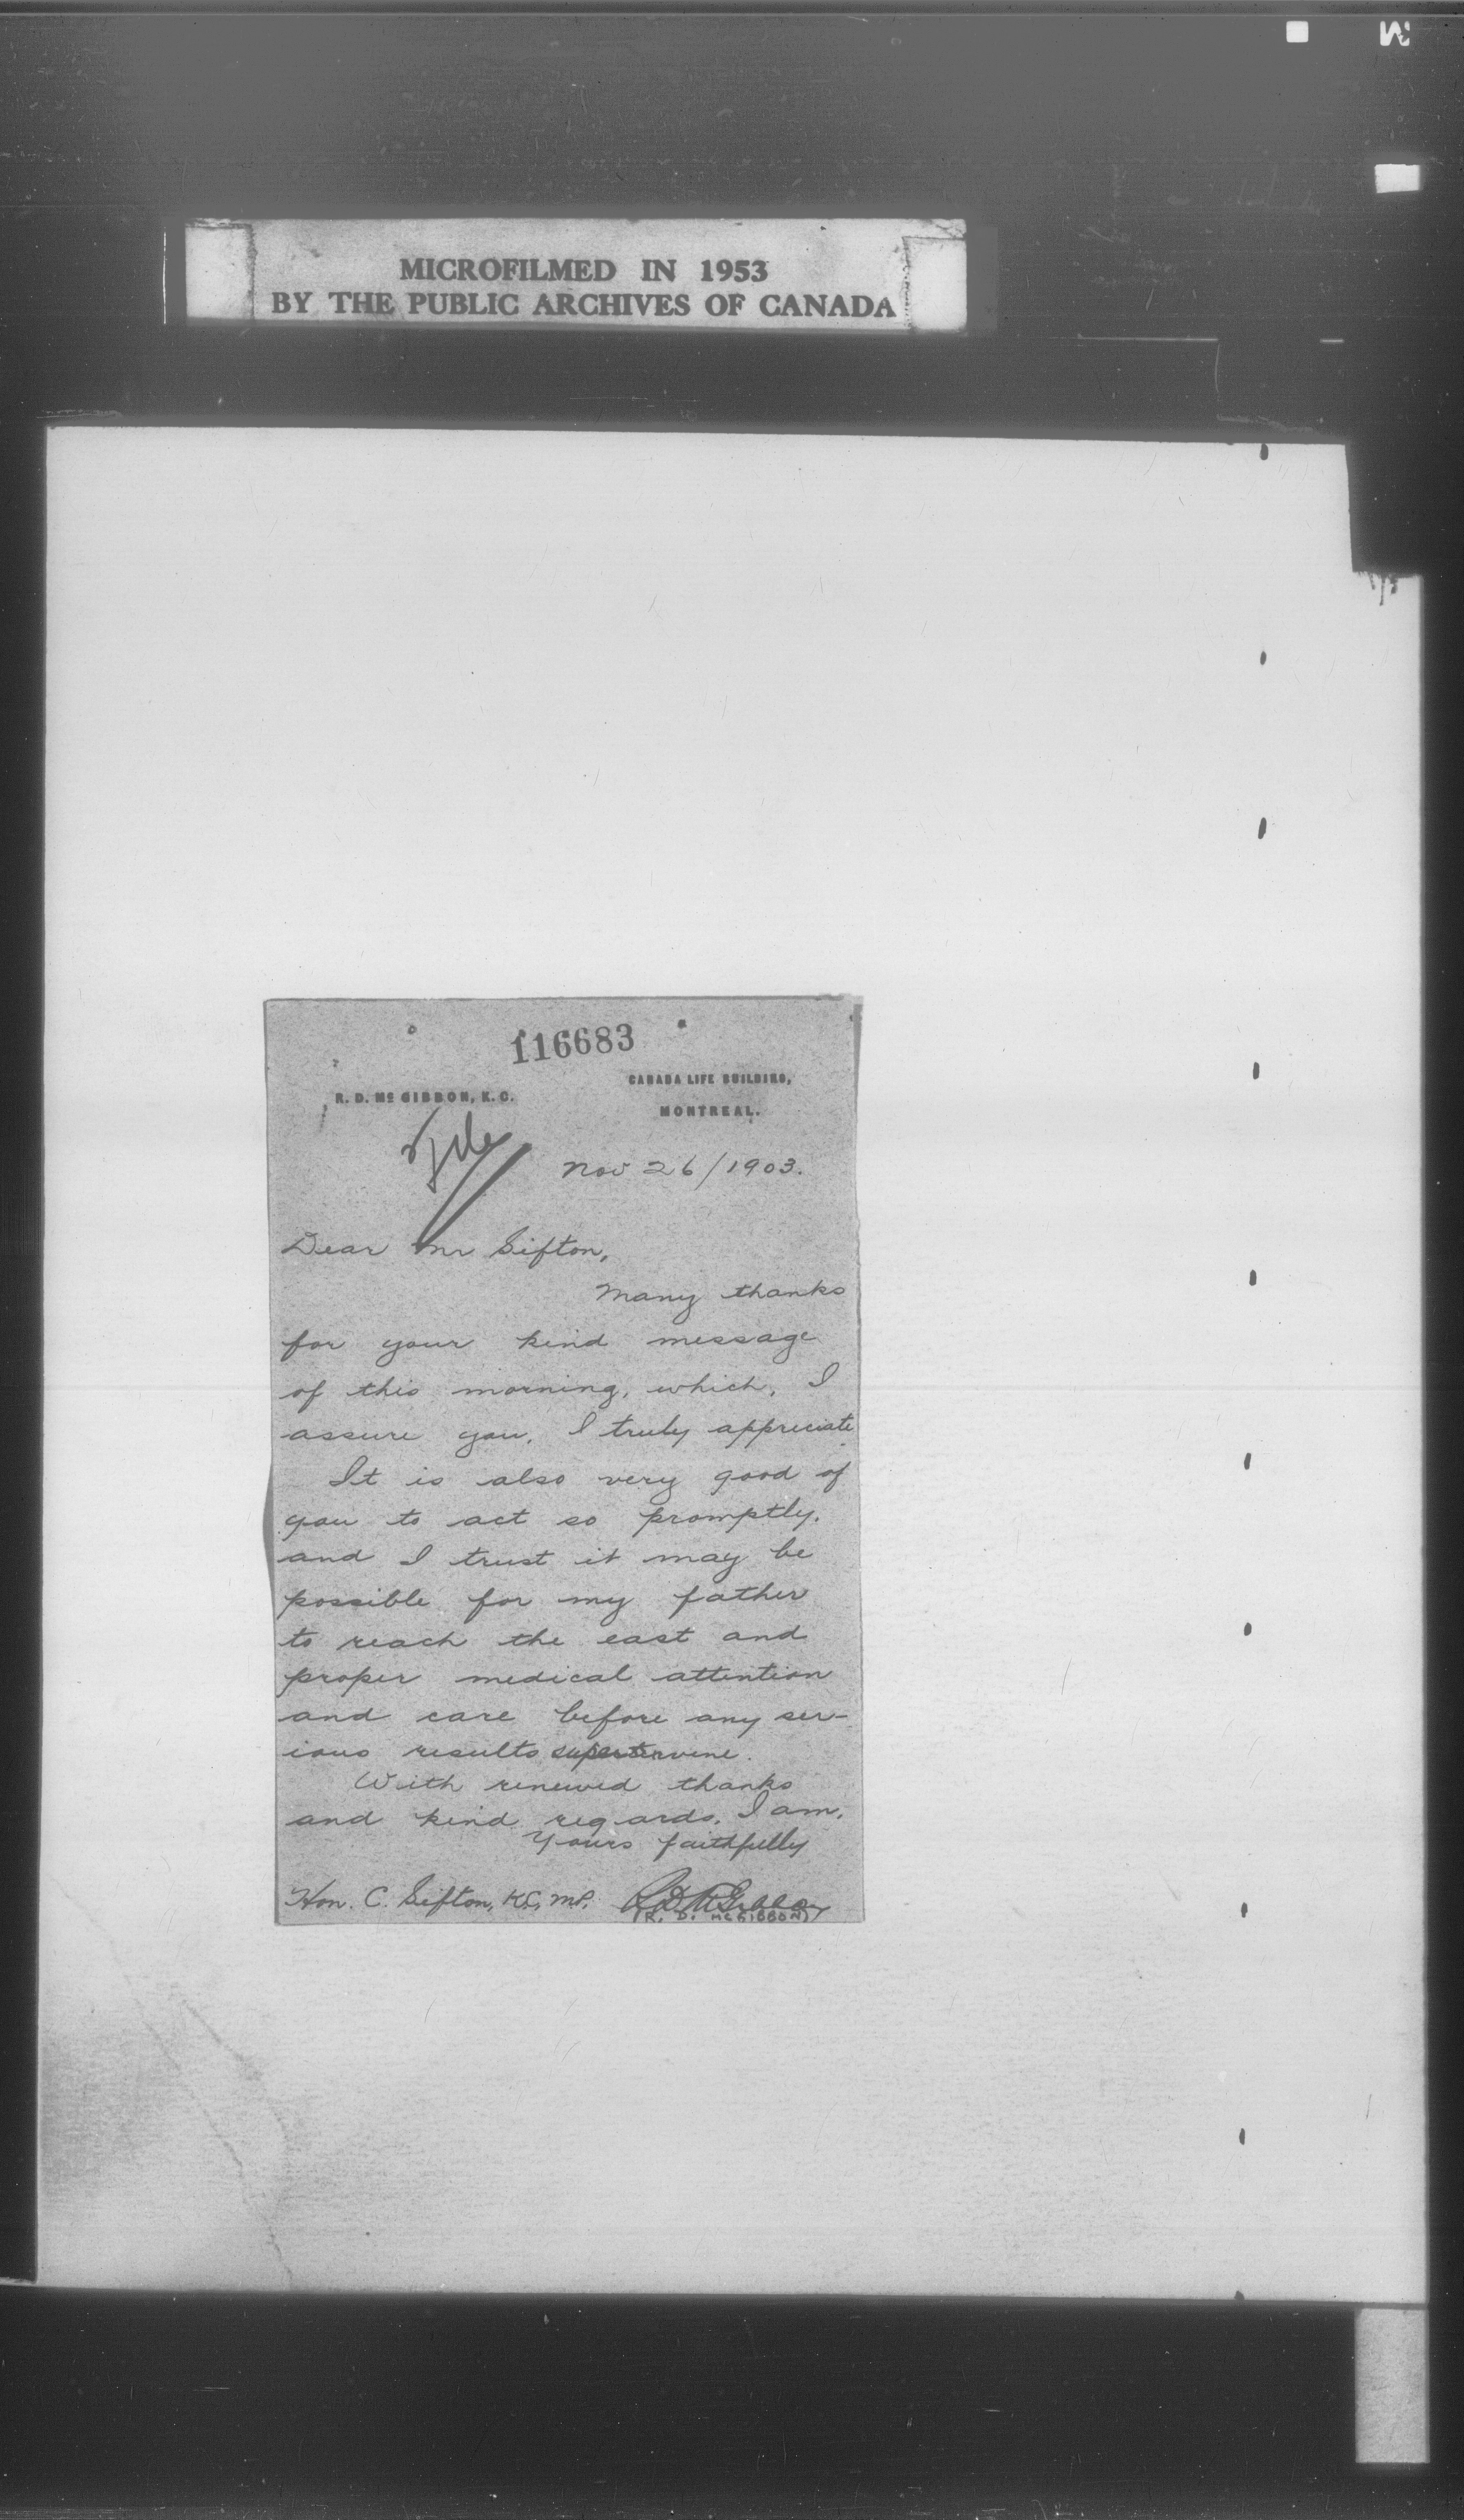 MICROFILMED IN 1953
BY THE PUBLIC ARCHIVES OF CANADA
116683
R. D. Mc GIBBON, K. C.
CANADA LIFE BUILDING,
MONTREAL.
File
Nov 26/1903.
Dear Mr Sifton,
Many thanks
for your kind message
of this morning, which, I
assure you, I truly appreciate
It is also very good of
you to act so promptly,
and I trust it may be
possible for my father
to reach the east and
proper medical attention
and care before any ser-
ious results supervene.
With renewed thanks
and kind regards, I am,
Yours faithfully
Hon. C. Sifton, K.C, M.P. R D McGibbon
(R. D. McGIBBON)